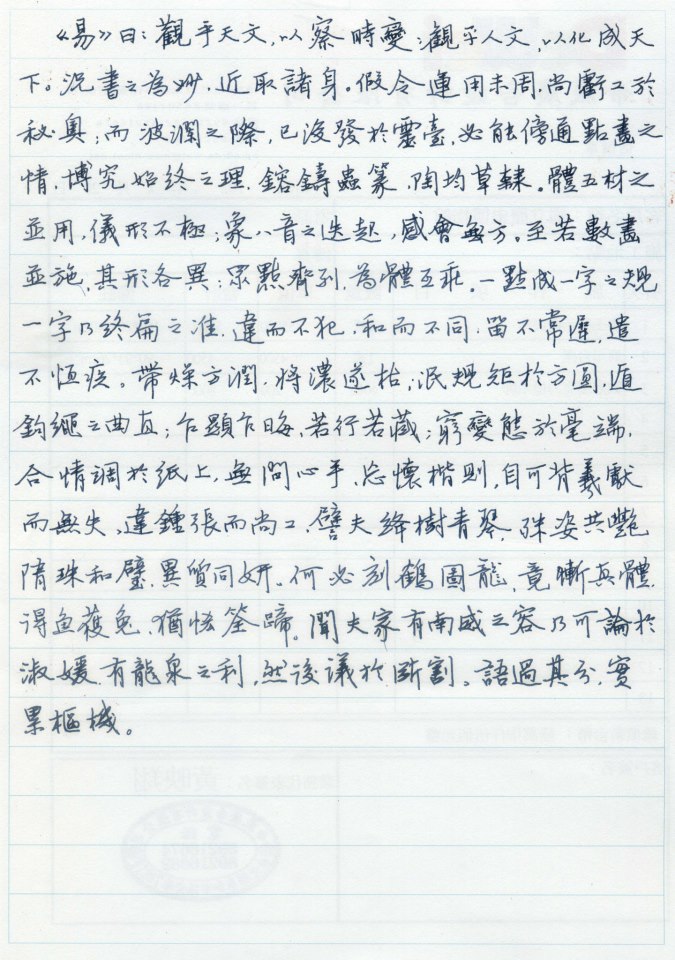 《易》曰：觀乎天文，以察時變；觀乎人文，以化成天
下。況書之為妙，近取諸身。假令運用未周，尚虧工於
秘奧；而波瀾之際，已浚發於靈臺。必能傍通點畫之
情，博究始終之理，鎔鑄蟲篆，陶均草隸。體五材之
並用，儀形不極；象八音之迭起，感會無方。至若數畫
並施，其形各異；眾點齊列，為體互乖。一點成一字之規
一字乃終篇之准，違而不犯，和而不同，留不常遲，遣
不恆疾。帶燥方潤，將濃遂枯；泯規矩於方圓，遁
鉤繩之曲直；乍顯乍晦，若行若藏；窮變態於毫端，
合情調於紙上，無間心手，忘懷楷則，自可背羲獻
而無失，違鍾張而尚工。譬夫絳樹青琴，殊姿共艷
隋珠和璧，異質同妍。何必刻鶴圖龍，竟慚真體，
得魚獲兔，猶恡筌蹄。聞夫家有南威之容乃可論於
淑媛有龍泉之利，然後議於斷割。語過其分，實
累樞機。